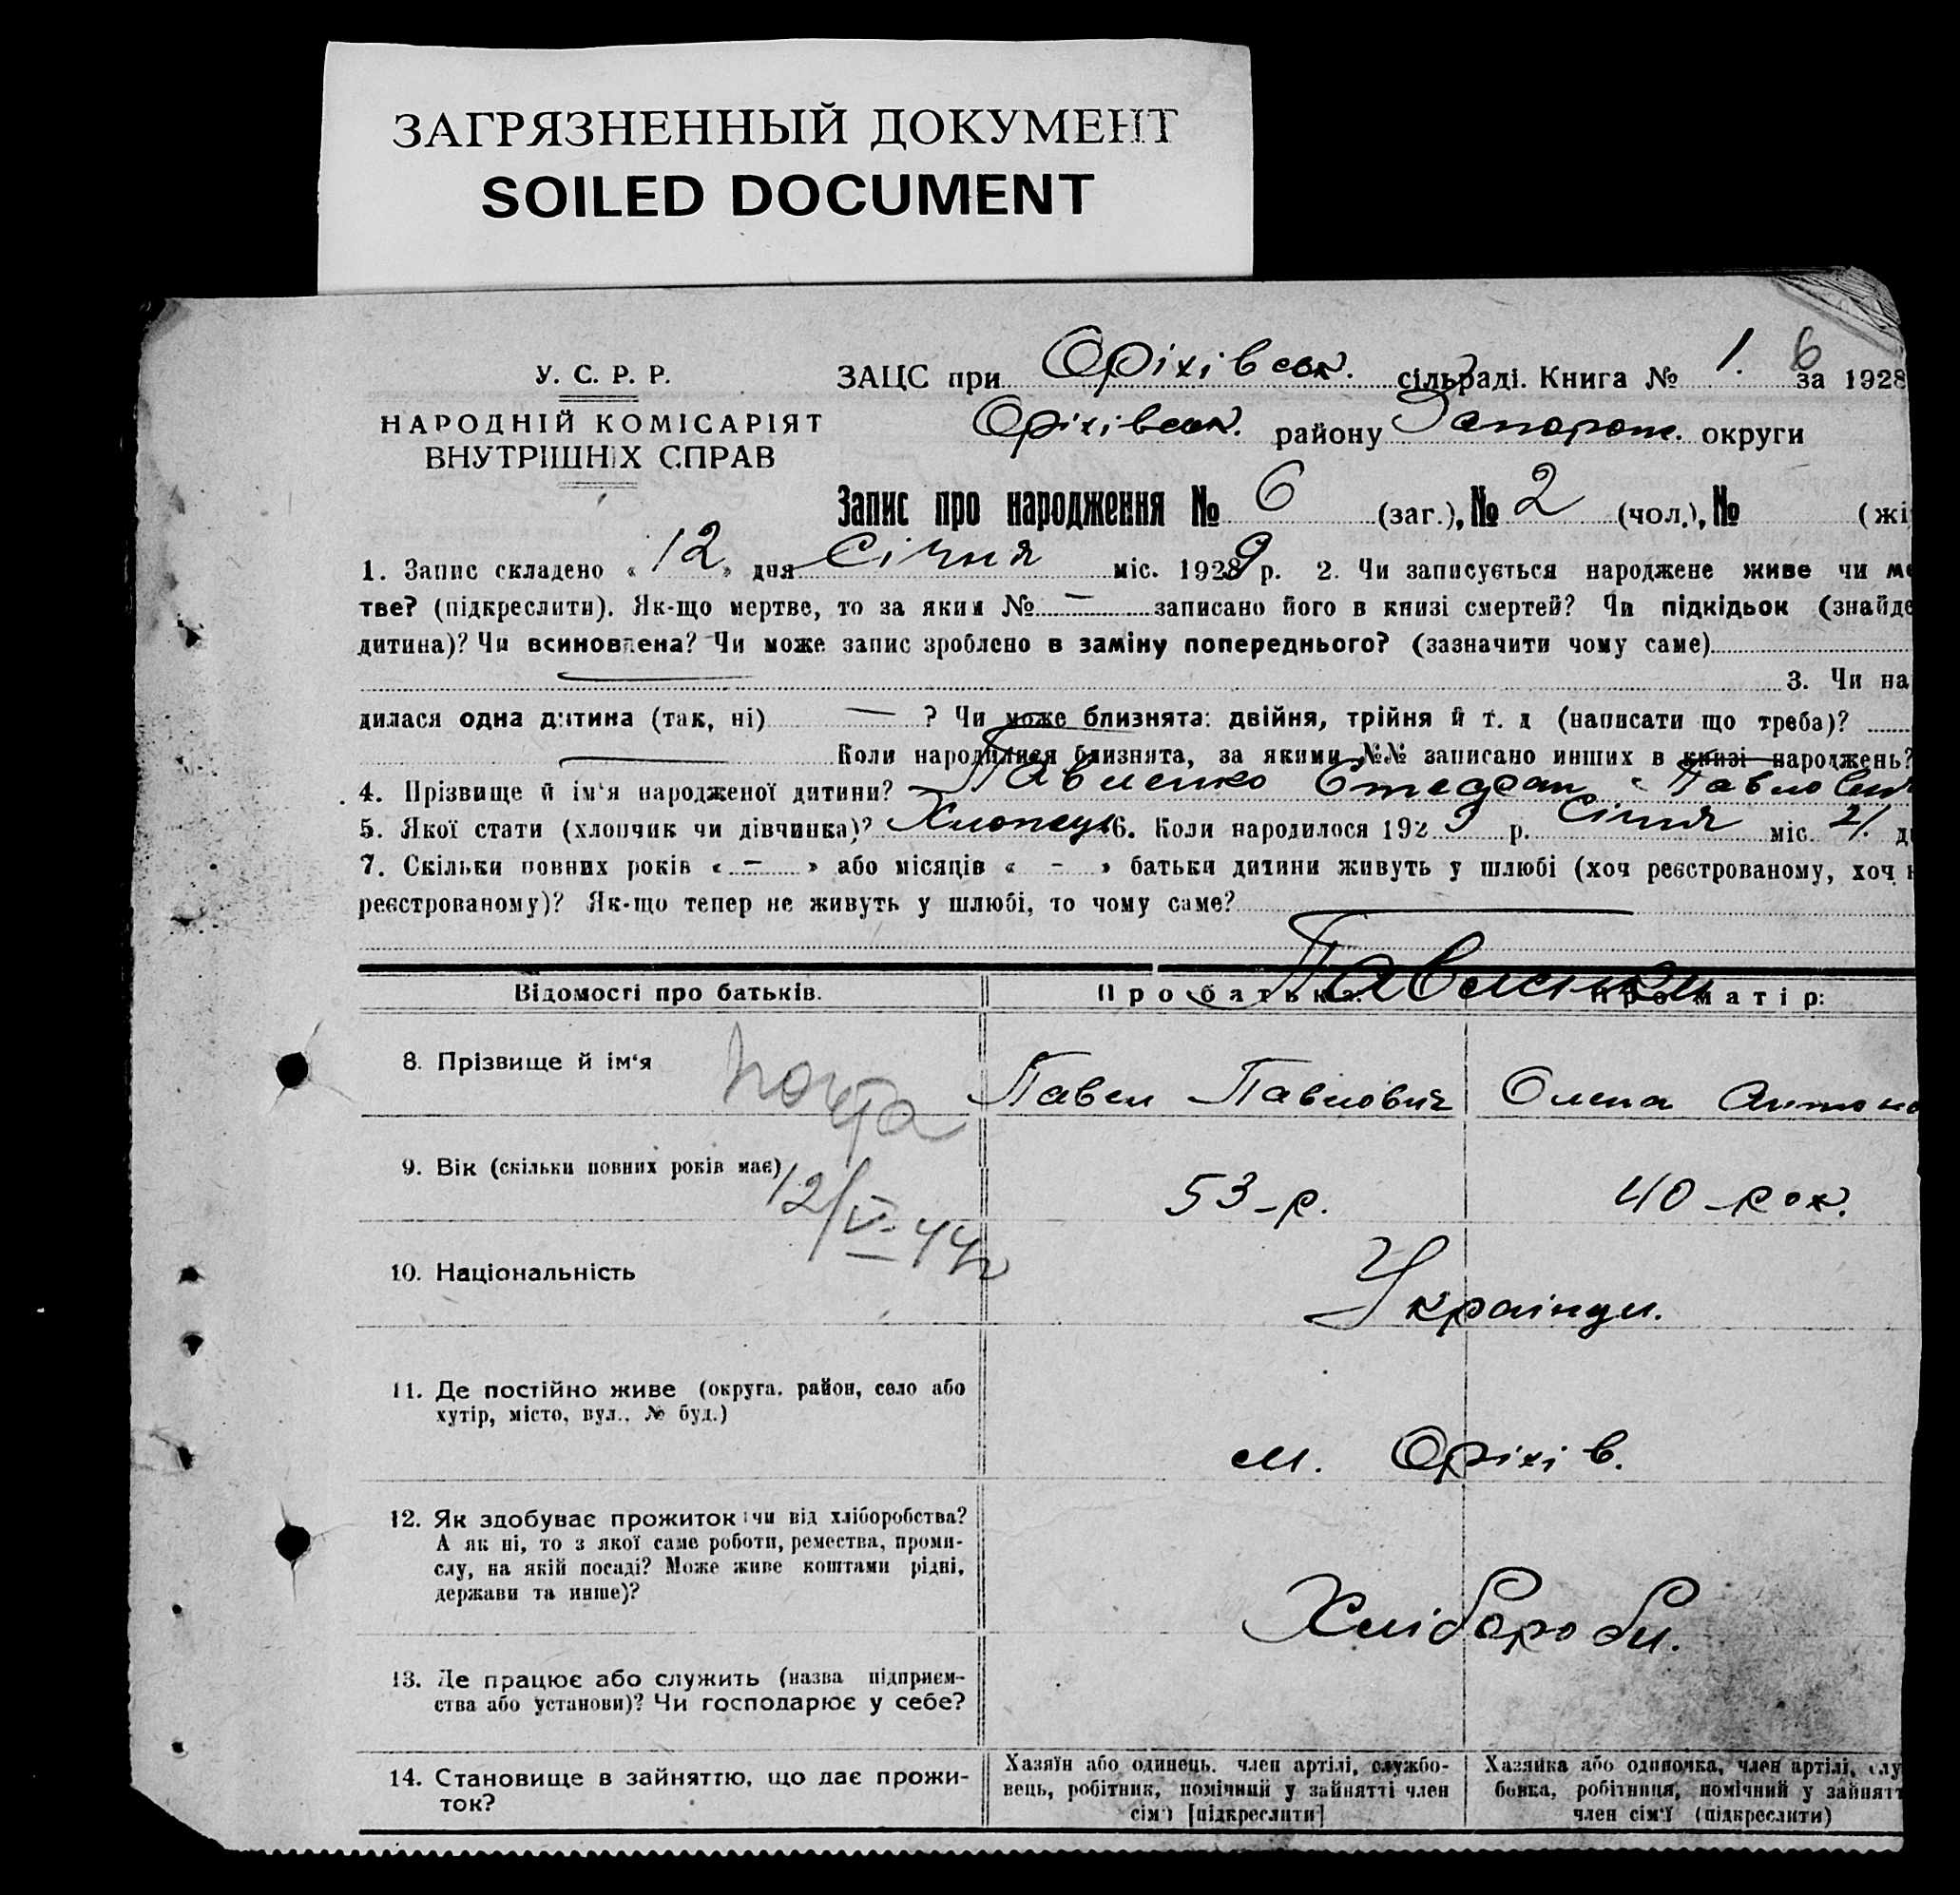 ЗАГРЯЗНЕННЫЙ ДОКУМЕНТ
SOILED DOCUMENT
У. С. Р. Р.
НАРОДНІЙ КОМІСАРІЯТ
ВНУТРІШНІХ СПРАВ
ЗАЦС при Оріхівськ. сільраді. Книга № 1. 6 за 1928
Оріхівськ. району Запорож. округи
Запис про народження № 6 (заг.), № 2 (чол.), № (жі
1. Запис складено « 12 » дня Січня міс. 1929 р. 2. Чи записується народжене живе чи ме
тве? (підкреслити). Як-що мертве, то за яким № — записано його в книзі смертей? Чи підкідьок (знайде
дитина)? Чи всиновлена? Чи може запис зроблено в заміну попереднього? (зазначити чому саме)
3. Чи на
дилася одна дитина (так, ні) — ? Чи може близнята: двійня, трійня й т. д (написати що треба)?
Коли народилися близнята, за якими №№ записано инших в книзі народжень?
4. Прізвище й ім'я народженої дитини? Павленко Стефан Павлович
5. Якої стати (хлопчик чи дівчинка)? Хлопець 6. Коли народилося 1929 р. Січня міс. 21. д
7. Скільки повних років « – » або місяців « - » батьки дитини живуть у шлюбі (хоч реєстрованому, хоч н
реєстрованому)? Як-що тепер не живуть у шлюбі, то чому саме?
Павленки
Відомості про батьків. Про батька: Про матір:
8. Прізвище й ім'я Павел Павлович Олена Антоно
9. Вік (скільки повних років має) 53-р. 40-рок.
12/V-44г
10. Національність Українци.
11. Де постійно живе (округа, район, село або
хутір, місто, вул., № буд.)
м. Оріхів.
12. Як здобуває прожиток: чи від хліборобства?
А як ні, то з якої саме роботи, ремества, проми-
слу, на якій посаді? Може живе коштами рідні,
держави та инше)?
Хлібороби.
13. Де працює або служить (назва підприєм-
ства або установи)? Чи господарює у себе?
14. Становище в зайняттю, що дає прожи-
ток?
Хазяїн або одинець, член артілі, службо-
вець, робітник, помічний у зайнятті член
сім'ї [підкреслити]
Хазяйка або одиночка, член артілі, слу
бовка, робітниця, помічний у зайнятт
член сім'ї (підкреслити)